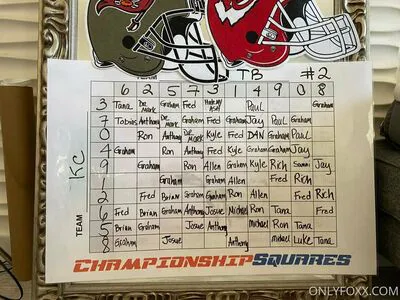 TEAM TB #2
6 2 5 7 3 1 4 9 0 8
3 Tana Dr. Mark Graham Fred Paul Graham
7 Tobias Anthony Dr. Mark Graham Fred Graham Jay Paul Graham
0 Ron Anthony Dr. Mark Kyle Fred DAN Graham Paul
4 Graham Ron Anthony Fred Kyle Graham Graham Jay
9 Graham Ron Allen Graham Kyle Rich Jay
1 Graham Graham Allen Fred Rich
2 Fred Brian Graham Anthony Graham Ron Allen Fred Rich
6 Fred Brian Graham Anthony Josue Michael Ron Tana Fred
5 Brian Graham Josue Anthony Michael Ron Tana
8 Graham Josue Anthony Michael Luke Tana
TEAM KC
CHAMPIONSHIP SQUARES
ONLYFOXX.COM